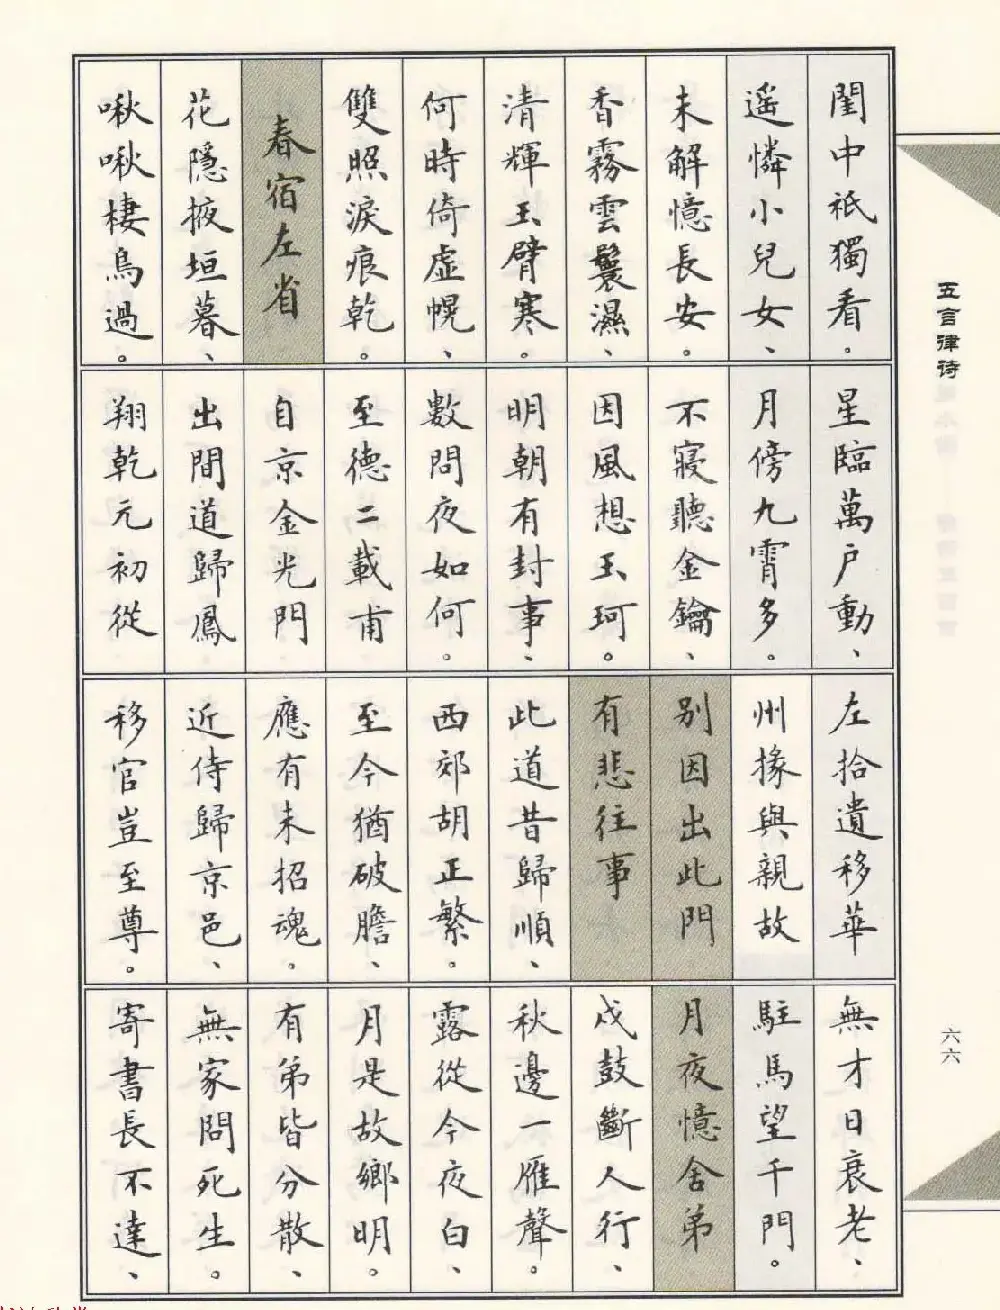 閨中衹獨看。
遥憐小兒女、
未解憶長安。
香霧雲鬟濕、
清輝玉臂寒。
何時倚虛幌、
雙照淚痕乾。
春宿左省
花隱掖垣暮、
啾啾棲鳥過。
星臨萬户動、
月傍九霄多。
不寢聽金鑰、
因風想玉珂。
明朝有封事、
數問夜如何。
至德二載甫
自京金光門
出間道歸鳳
翔乾元初從
左拾遺移華
州掾與親故
别因出此門
有悲往事
此道昔歸順、
西郊胡正繁。
至今猶破膽、
應有未招魂。
近侍歸京邑、
移官豈至尊。
無才日衰老、
駐馬望千門。
月夜憶舍弟
戍鼓斷人行、
秋邊一雁聲。
露從今夜白、
月是故鄉明。
有弟皆分散、
無家問死生。
寄書長不達、
五言律诗
六六